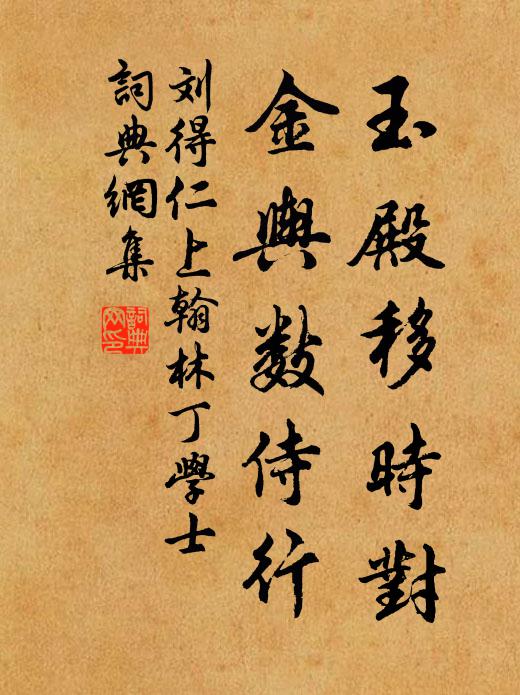 玉殿移時對
金輿數侍行
刘得仁上翰林丁學士
詞典網集
詞典網印